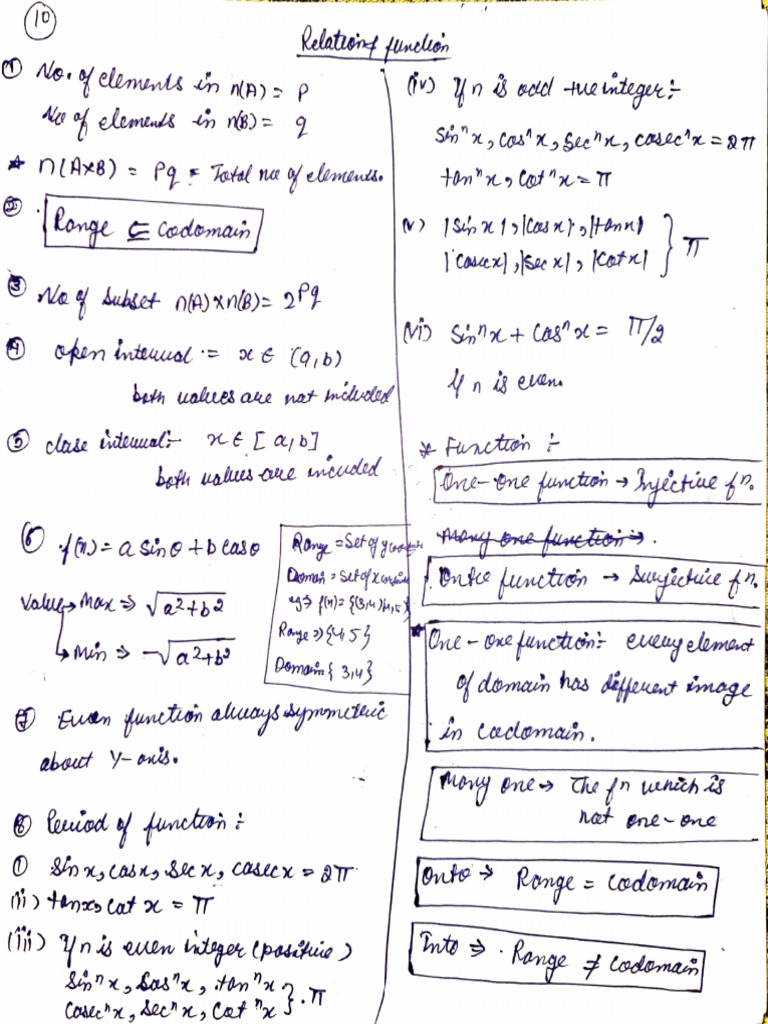 10
Relation & function
① No. of elements in n(A) = p
No of elements in n(B) = q
* n(A×B) = Pq = Total no of elements.
② Range ⊆ codomain
③ No of subset n(A)×n(B) = 2^Pq
④ open interval = x ∈ (a,b)
both values are not included
⑤ close interval:- x ∈ [a,b]
both values are included
⑥ f(x) = a sinθ + b cosθ
Value → Max ⇒ √a²+b²
→ Min ⇒ -√a²+b²
Range = Set of y
Domain = Set of x
eg → f(x) = {(3,4)(4,5)}
Range ⇒ {4,5}
Domain { 3,4}
⑦ Even function always symmetric
about Y-axis.
⑧ Period of function :-
① sinx, cosx, secx, cosecx = 2π
(ii) tanx, cot x = π
(iii) If n is even integer (positive)
sinⁿx, cosⁿx, tanⁿx
cosecⁿx, secⁿx, cotⁿx } π
(iv) If n is odd +ve integer:-
sinⁿx, cosⁿx, secⁿx, cosecⁿx = 2π
tanⁿx, cotⁿx = π
(v) |sinx|, |cosx|, |tanx|
|cosecx|, |secx|, |cotx| } π
(vi) sinⁿx + cosⁿx = π/2
If n is even.
* Function :-
One-One function → Injective fⁿ.
Many one function →.
Onto function → Surjective fⁿ.
* One-one function:- every element
of domain has different image
in codomain.
Many one → The fn which is
not one-one
Onto → Range = codomain
Into ⇒ Range ≠ codomain